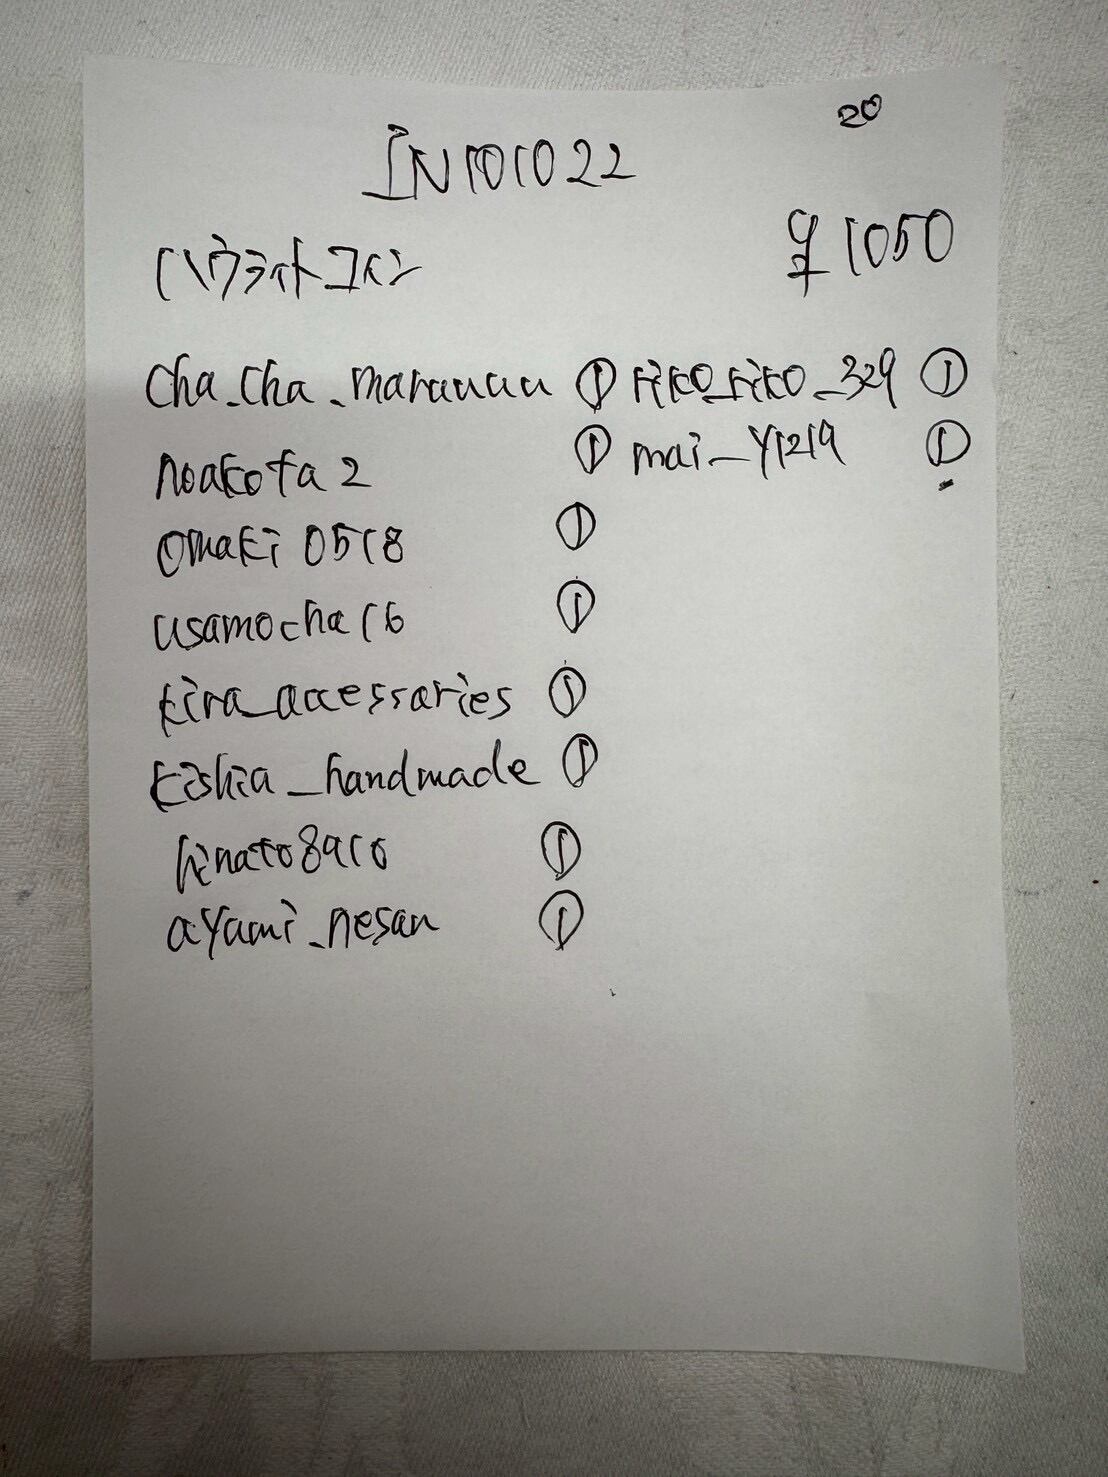 20
IN101022
ハウライトコイン ¥1050
cha_cha_maruuuu ① riko_riko_329 ①
noakota2 ① mai_y1219 ①
omaki0518 ①
usamocha16 ①
kira_accessaries ①
kishia_handmade ①
hinato8910 ①
ayami_nesan ①